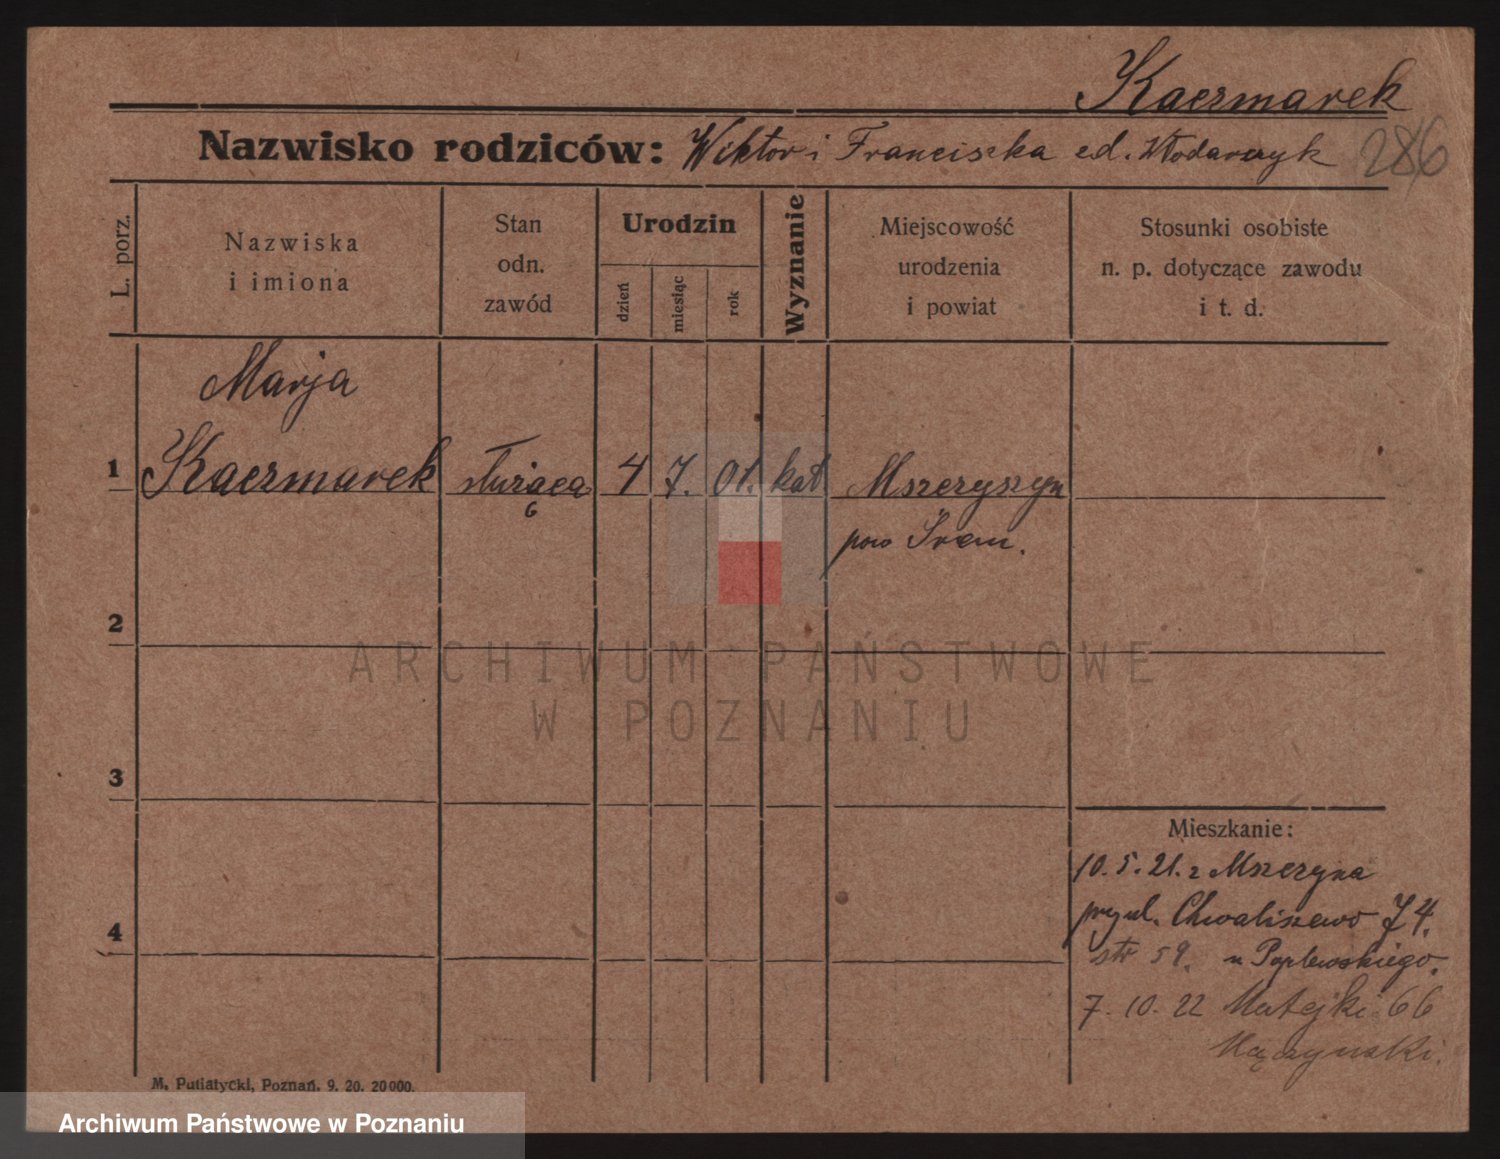 Kaczmarek
Nazwisko rodziców: Wiktor i Franciszka Włodarczyk
286
L. porz.
Nazwiska i imiona
Stan odn. zawód
Urodzin
dzień
miesiąc
rok
Wyznanie
Miejscowość urodzenia i powiat
Stosunki osobiste n. p. dotyczące zawodu i t. d.
Marja
1 Kaczmarek służąca 4 7. 01. kat Mszczyszyn
6
pow Śrem.
2
ARCHIWUM PAŃSTWOWE
W POZNANIU
3
Mieszkanie:
10. 5. 21. z Mszczyna
4
Chwaliszewo 74.
str 59. u Poplewskiego.
7. 10. 22 Matejki 66
M. Putiatycki, Poznań. 9. 20. 20000.
Archiwum Państwowe w Poznaniu